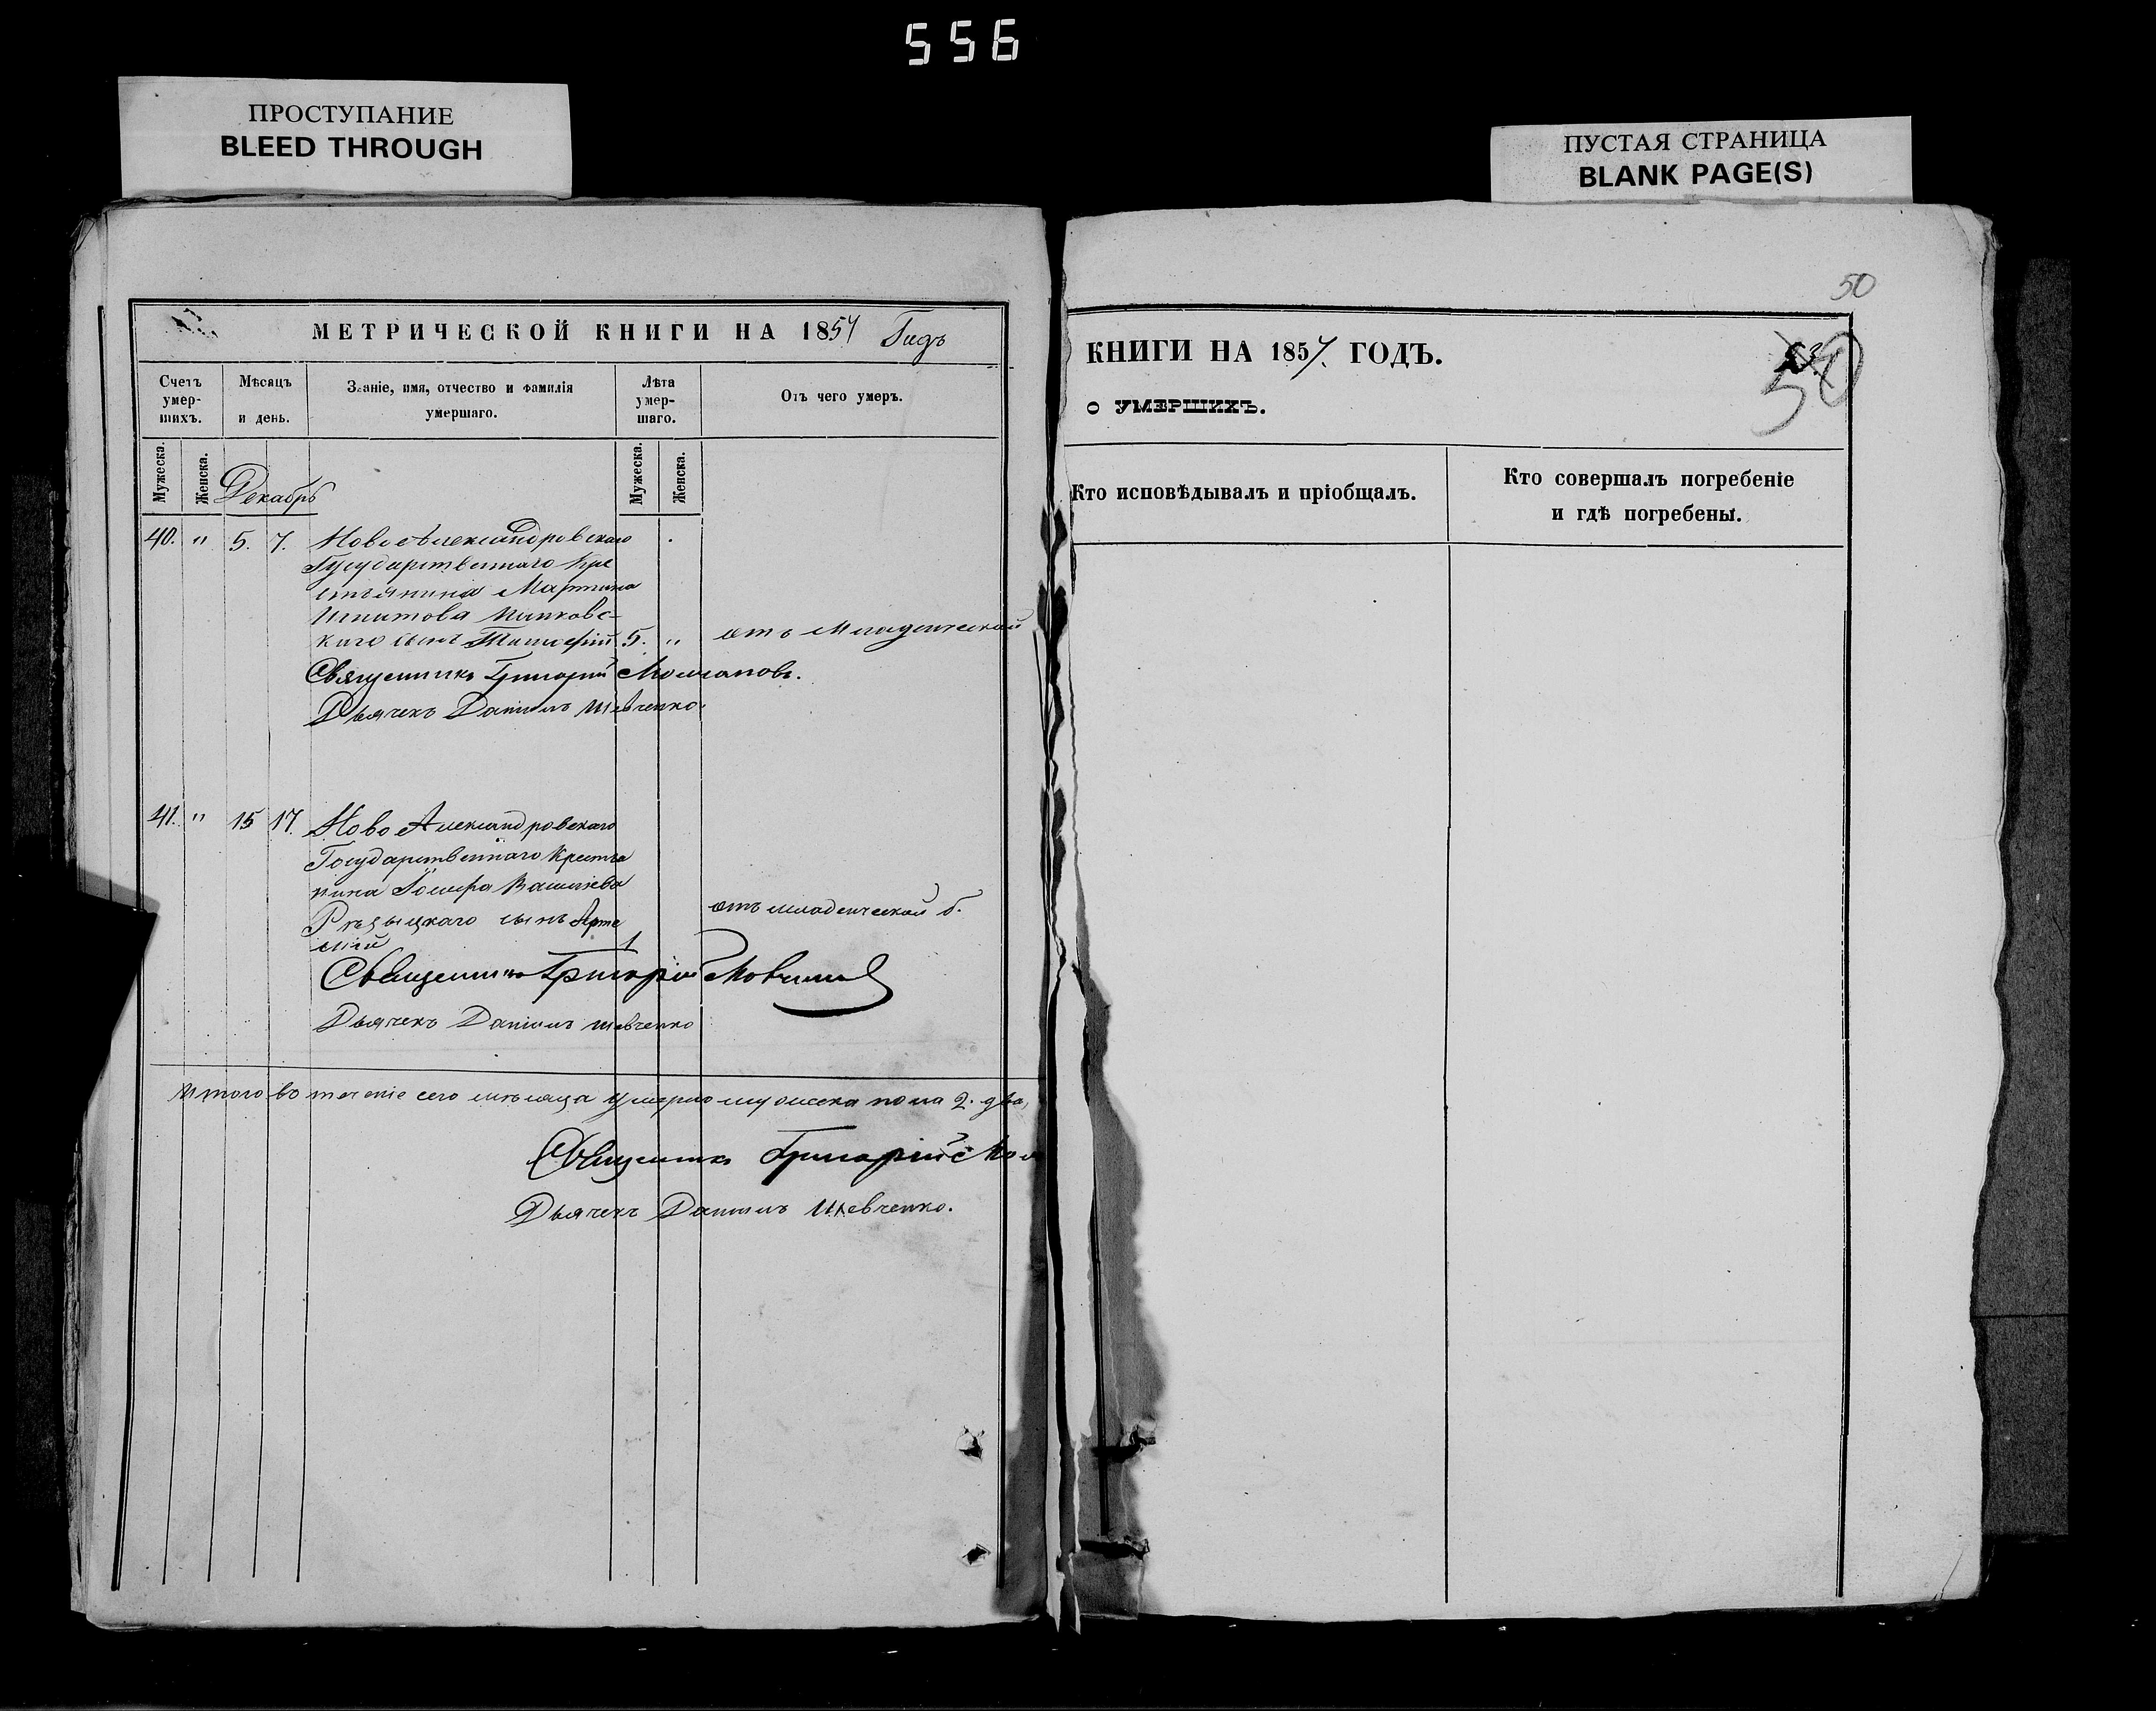 556
ПРОСТУПАНИЕ
BLEED THROUGH
ПУСТАЯ СТРАНИЦА
BLANK PAGE(S)
МЕТРИЧЕСКОЙ КНИГИ НА 1857 Годъ
Счетъ умер-шихъ.
Мѣсяцъ и день.
Званіе, имя, отчество и фамилія умершаго.
Лѣта умер-шаго.
Отъ чего умеръ.
Мужеска.
Женска.
Декабрь
Мужеска.
Женска.
40. " 5. 7. Ново Александровскаго
Государственнаго Кре
стьянина Мартина
сынъ Тимофей 5. " отъ Младенческой
Священникъ Григорій Молчановъ.
Дьячекъ Даніилъ Шевченко.
41. " 15 17. Ново Александровскаго
Государственнаго Крестья
нина Іосифа Васильева
сынъ Арте отъ младенческой б.
мій 1
Священникъ Григорій
Дьячекъ Даніилъ Шевченко
Итого въ теченіе сего мѣсяца умерло мужеска пола 2. два,
Священникъ Григорій Мол
Дьячекъ Даніилъ Шевченко.
50
КНИГИ НА 1857. ГОДЪ.
50
о УМЕРШИХЪ.
Кто исповѣдывалъ и пріобщалъ.
Кто совершалъ погребеніе
и гдѣ погребены.